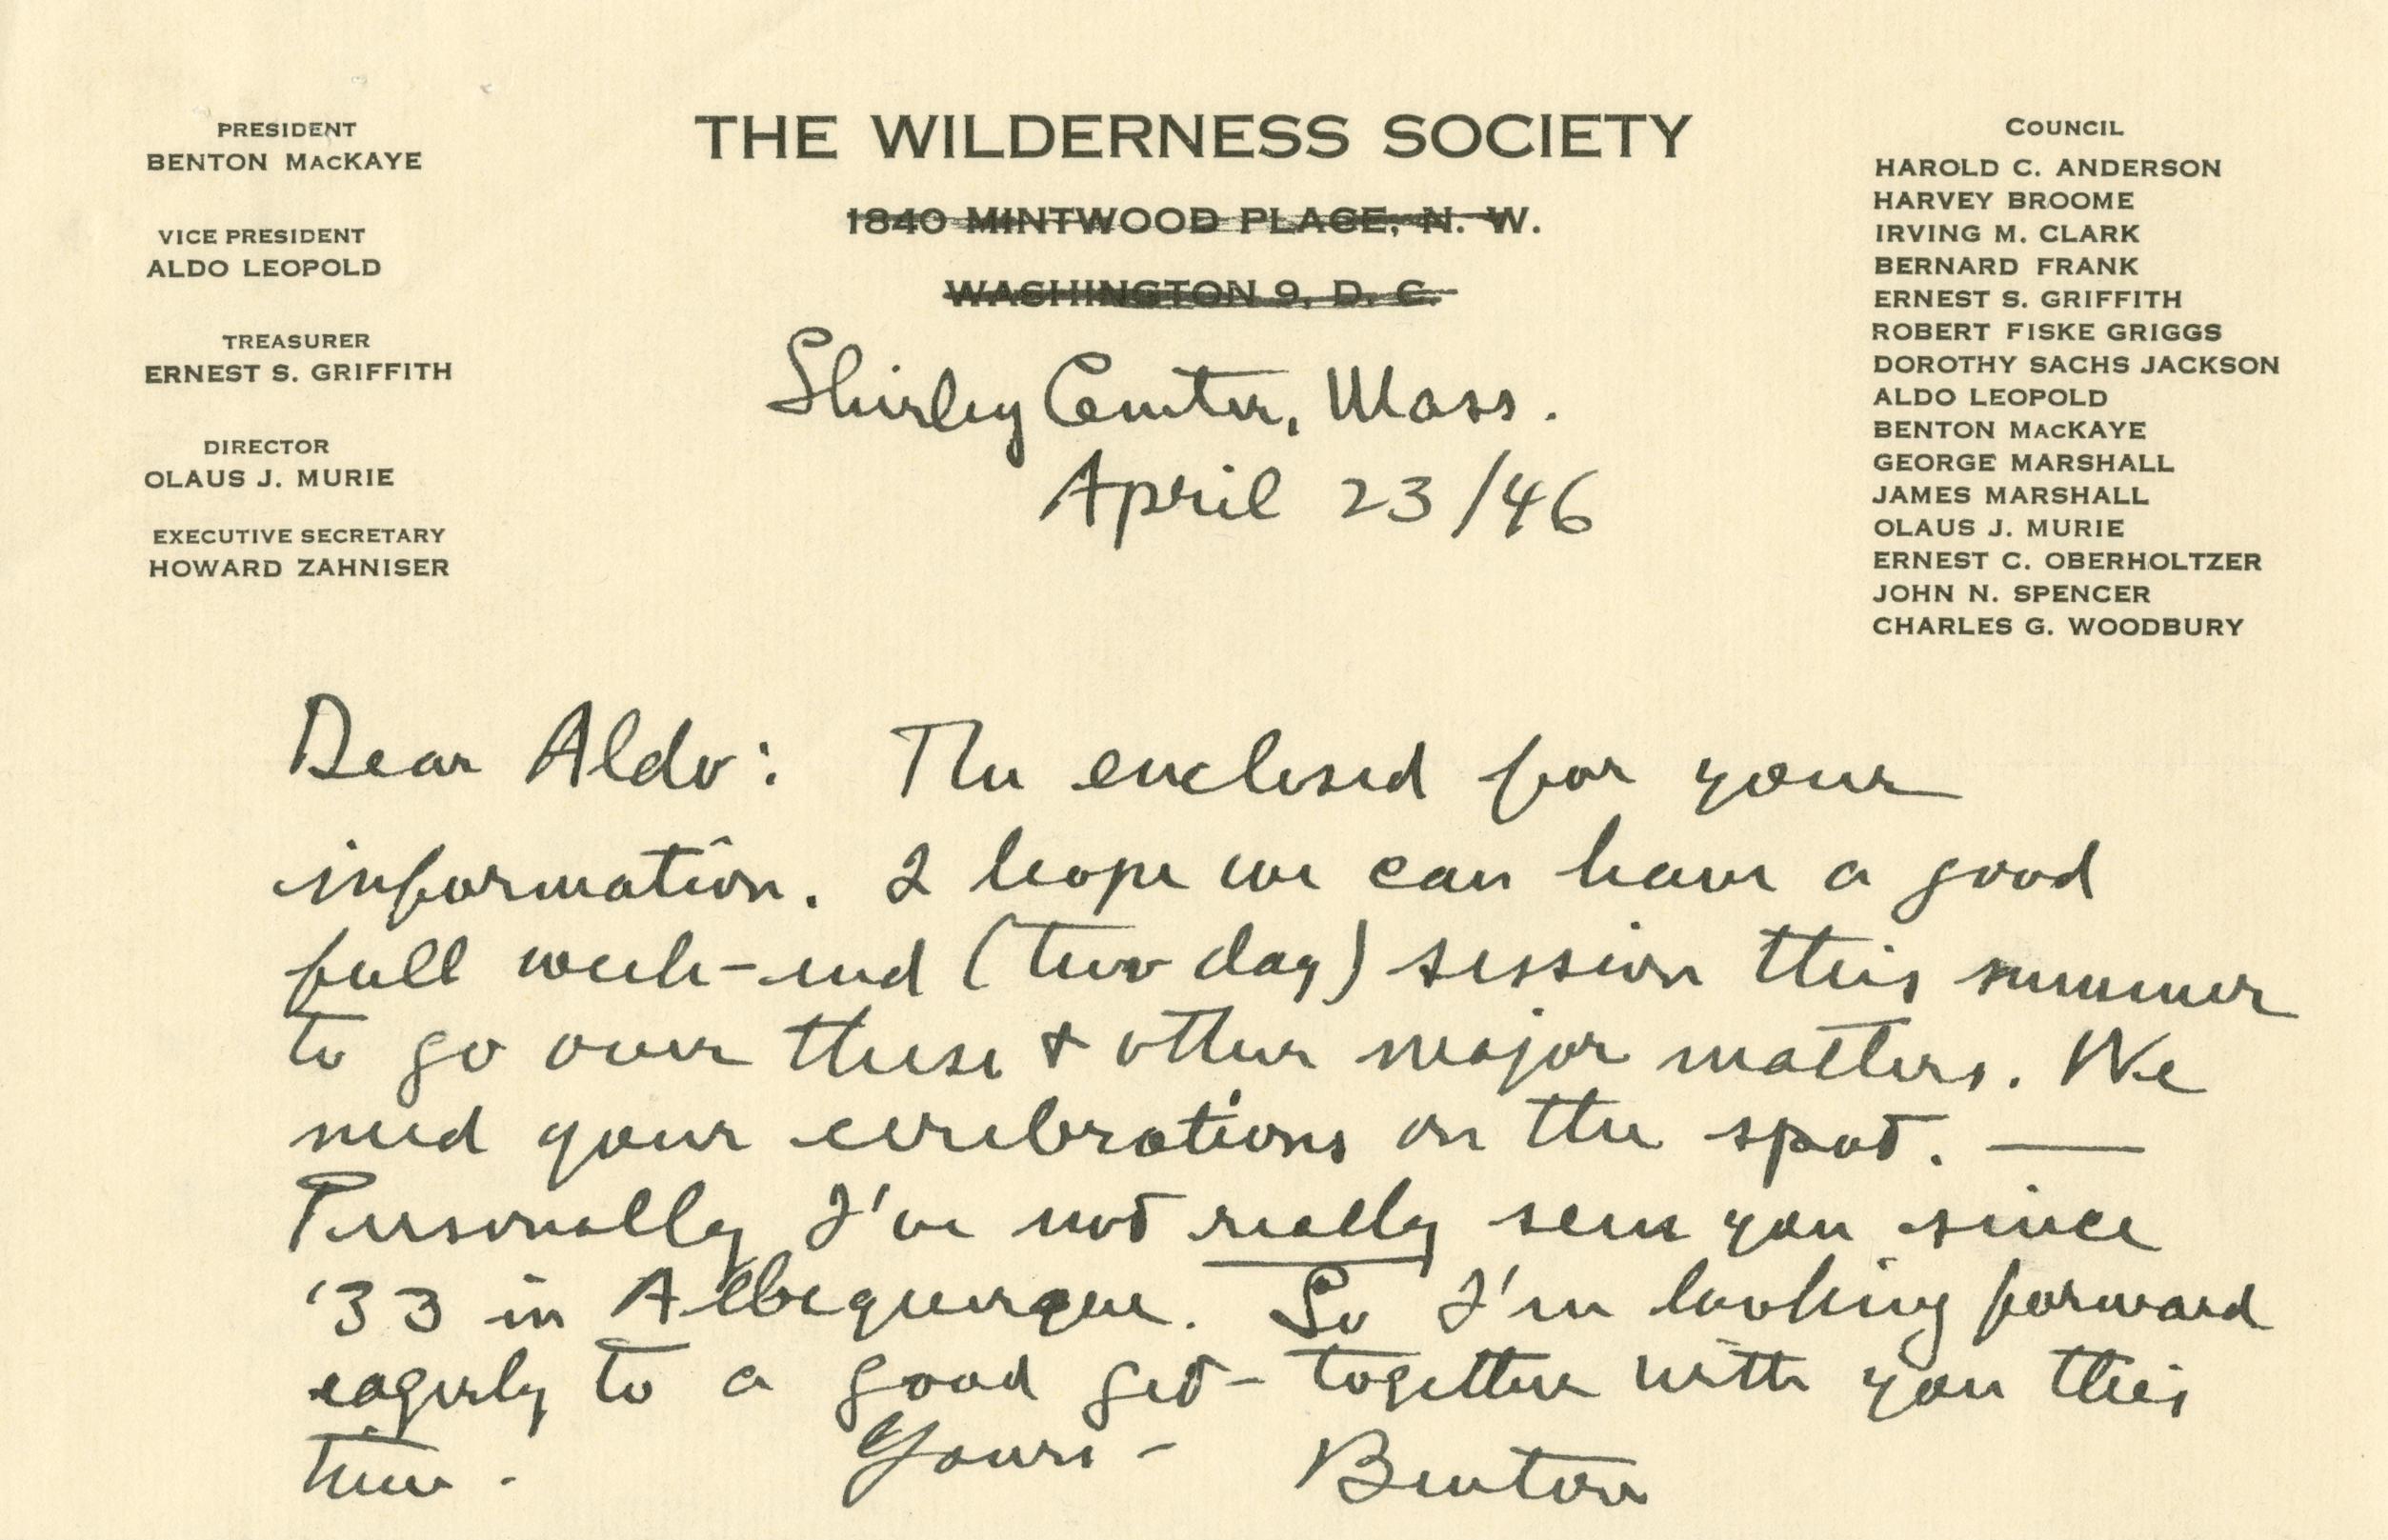 PRESIDENT
BENTON MacKAYE
VICE PRESIDENT
ALDO LEOPOLD
TREASURER
ERNEST S. GRIFFITH
DIRECTOR
OLAUS J. MURIE
EXECUTIVE SECRETARY
HOWARD ZAHNISER
THE WILDERNESS SOCIETY
1840 MINTWOOD PLACE, N. W.
WASHINGTON 9, D. C.
Shirley Center, Mass.
April 23/46
COUNCIL
HAROLD C. ANDERSON
HARVEY BROOME
IRVING M. CLARK
BERNARD FRANK
ERNEST S. GRIFFITH
ROBERT FISKE GRIGGS
DOROTHY SACHS JACKSON
ALDO LEOPOLD
BENTON MacKAYE
GEORGE MARSHALL
JAMES MARSHALL
OLAUS J. MURIE
ERNEST C. OBERHOLTZER
JOHN N. SPENCER
CHARLES G. WOODBURY
Dear Aldo: The enclosed for your
information. I hope we can have a good
full week-end (two day) session this summer
to go over these & other major matters. We
need your cerebrations on the spot. —
Personally I've not really seen you since
'33 in Albequerque. So I'm looking forward
eagerly to a good get-together with you this
time. Yours - Benton